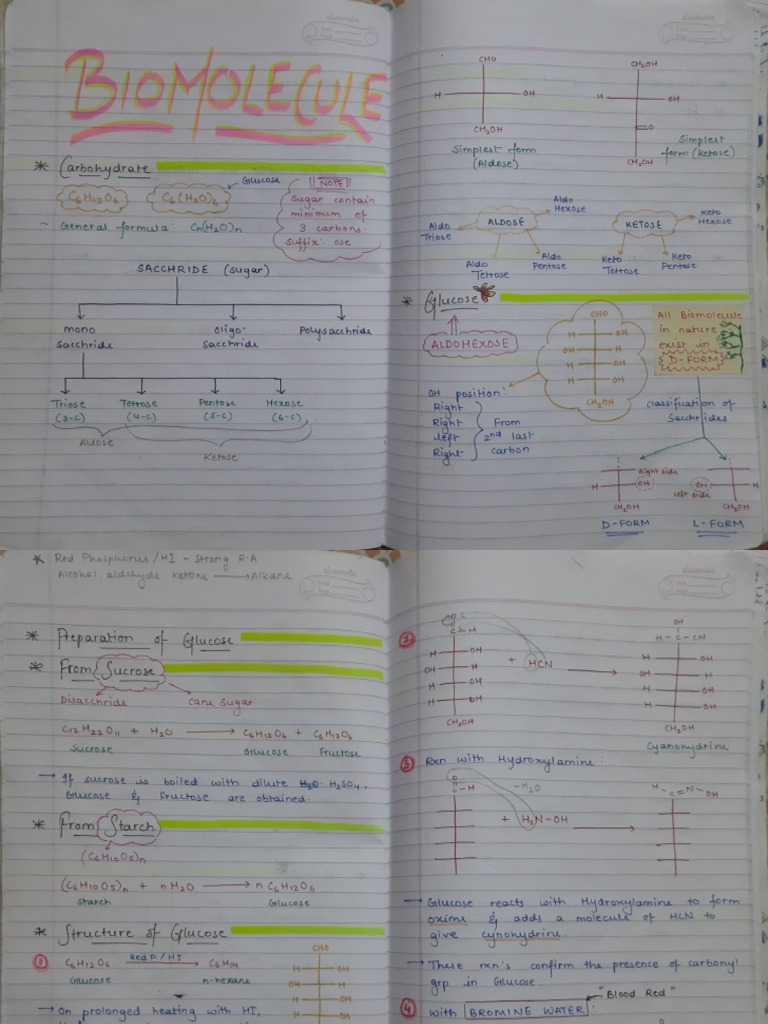 BIOMOLECULE
* Carbohydrate
C6H12O6 C6(H2O)6 Glucose
NOTE
Sugar contain
minimum of
3 carbons
Suffix: ose
~ General formula: Cn(H2O)n
SACCHRIDE (sugar)
mono
sacchride
oligo-
sacchride
Polysacchride
Triose Tetrose Pentose Hexose
(3-C) (4-C) (5-C) (6-C)
Aldose
Ketose
classmate
Date
Page
classmate
Date
Page
CHO
H OH
CH2OH
Simplest form
(Aldose)
CH2OH
H OH
=O
CH2OH
Simplest
form (Ketose)
ALDOSE
Aldo
Triose
Aldo
Tetrose
Aldo
Pentose
Aldo
Hexose
KETOSE
Keto
Hexose
Keto
Tetrose
Keto
Pentose
* Glucose
ALDOHEXOSE
CHO
H OH
OH H
H OH
H OH
CH2OH
All Biomolecule
in nature
exist in
D-FORM
OH position:
Right
Right
left
Right
From
2nd last
carbon
Classification of
Sacchrides
Right side
H OH
CH2OH
D-FORM
OH H
left side
CH2OH
L-FORM
* Red Phosphorus/HI - Strong R.A
Alcohol, aldehyde ketone → Alkane
classmate
Date
Page
* Preparation of Glucose
* From Sucrose
Disacchride cane sugar
C12H22O11 + H2O → C6H12O6 + C6H12O6
Sucrose Glucose Fructose
→ If sucrose is boiled with dilute H2SO4.
Glucose & Fructose are obtained.
* From Starch
(C6H10O5)n
(C6H10O5)n + nH2O → n C6H12O6
Starch Glucose
* Structure of Glucose
① C6H12O6 Red P/HI → C6H14
Glucose n-hexane
CHO
H OH
OH H
H OH
H OH
→ On prolonged heating with HI,
classmate
Date
Page
②
H OH
OH H
H OH
H OH
CH2OH
+ HCN →
OH
H-C-CN
H OH
OH H
H OH
H OH
CH2OH
Cyanohydrine
③ Rxn with Hydroxylamine:
O
C-H
-H2O
+ H2N-OH →
H-C=N-OH
→ Glucose reacts with Hydroxylamine to form
oxime & adds a molecule of HCN to
give cynohydrine.
→ These rxn's confirm the presence of carbonyl
grp in Glucose.
"Blood Red"
④ with BROMINE WATER: